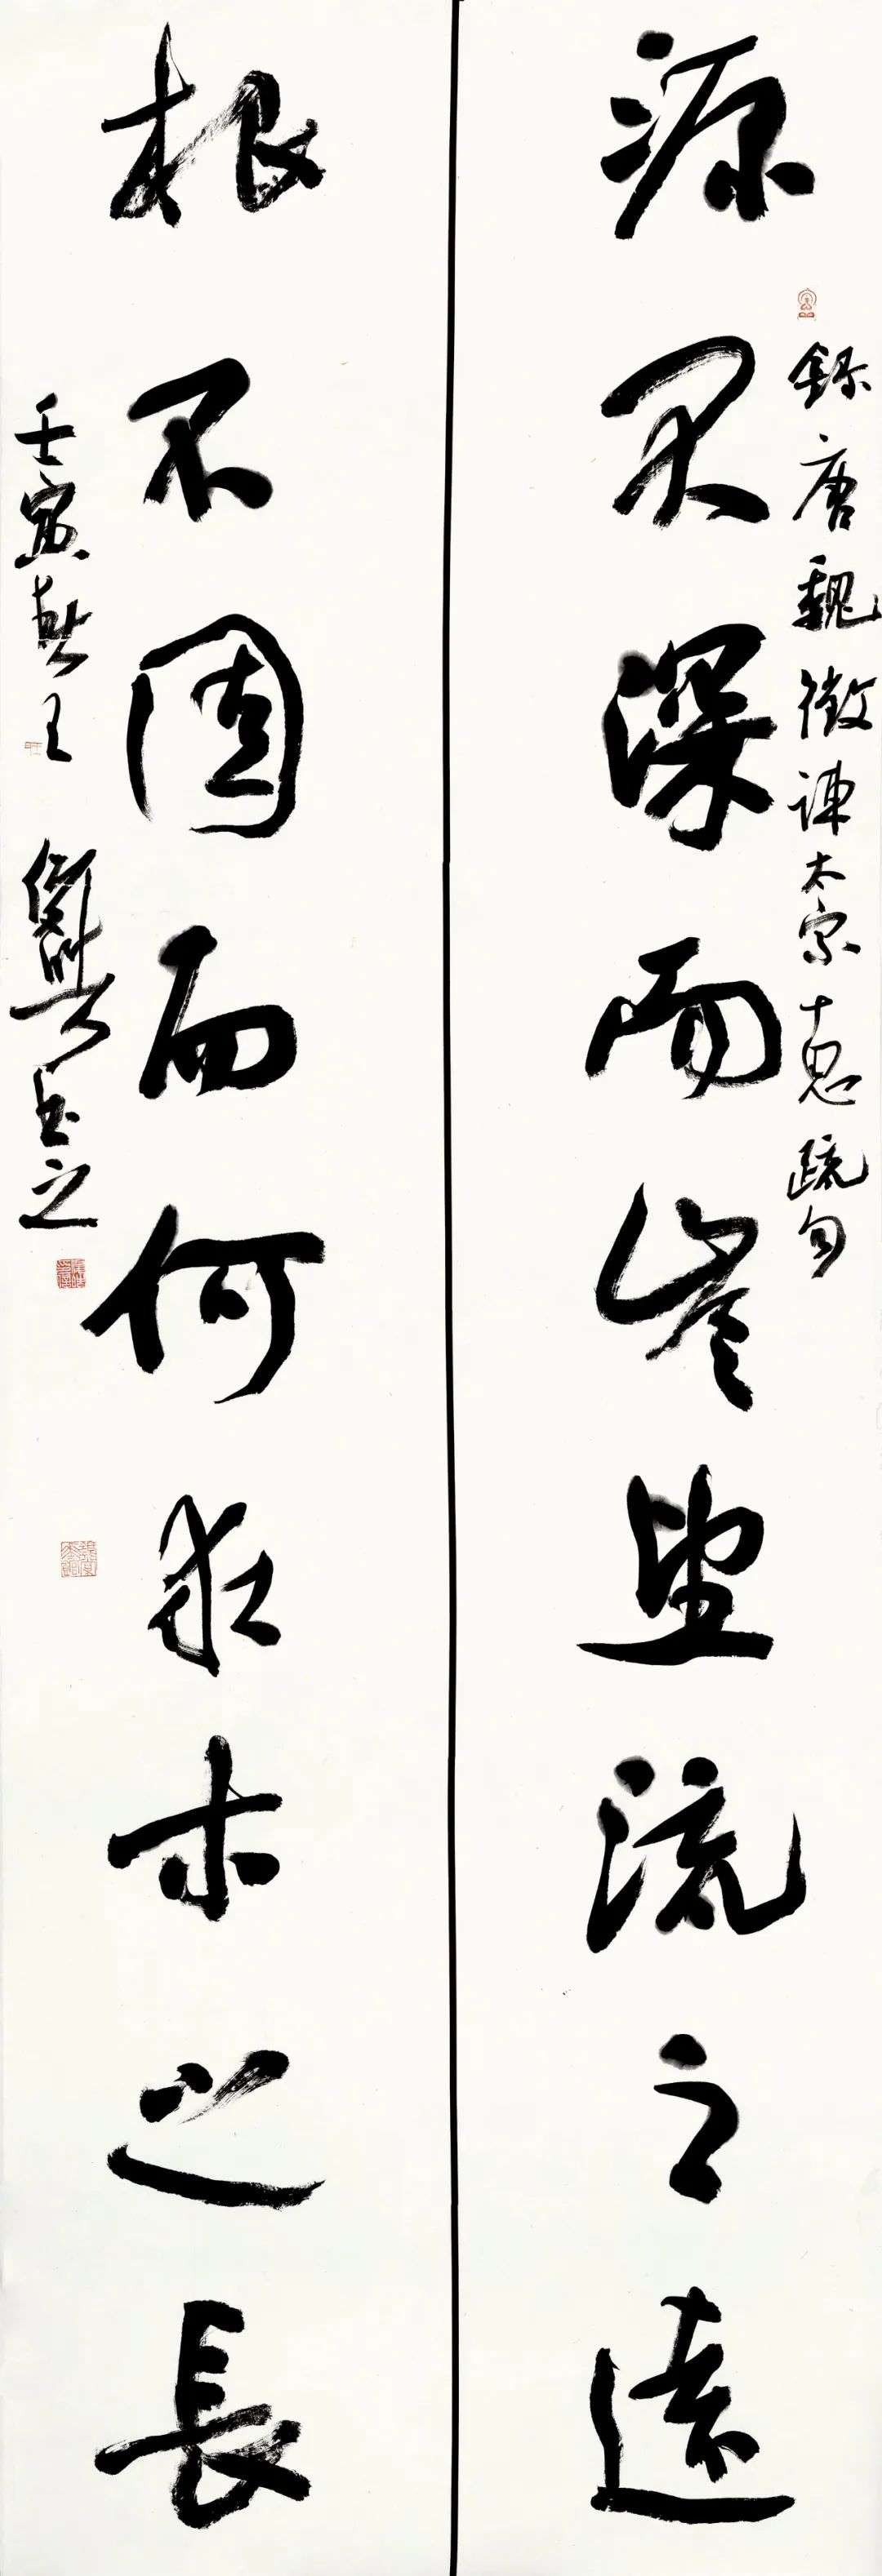 源不深而豈望流之遠
錄唐魏徵諫太宗十思疏句
根不固而何求木之長
壬寅春王
書之